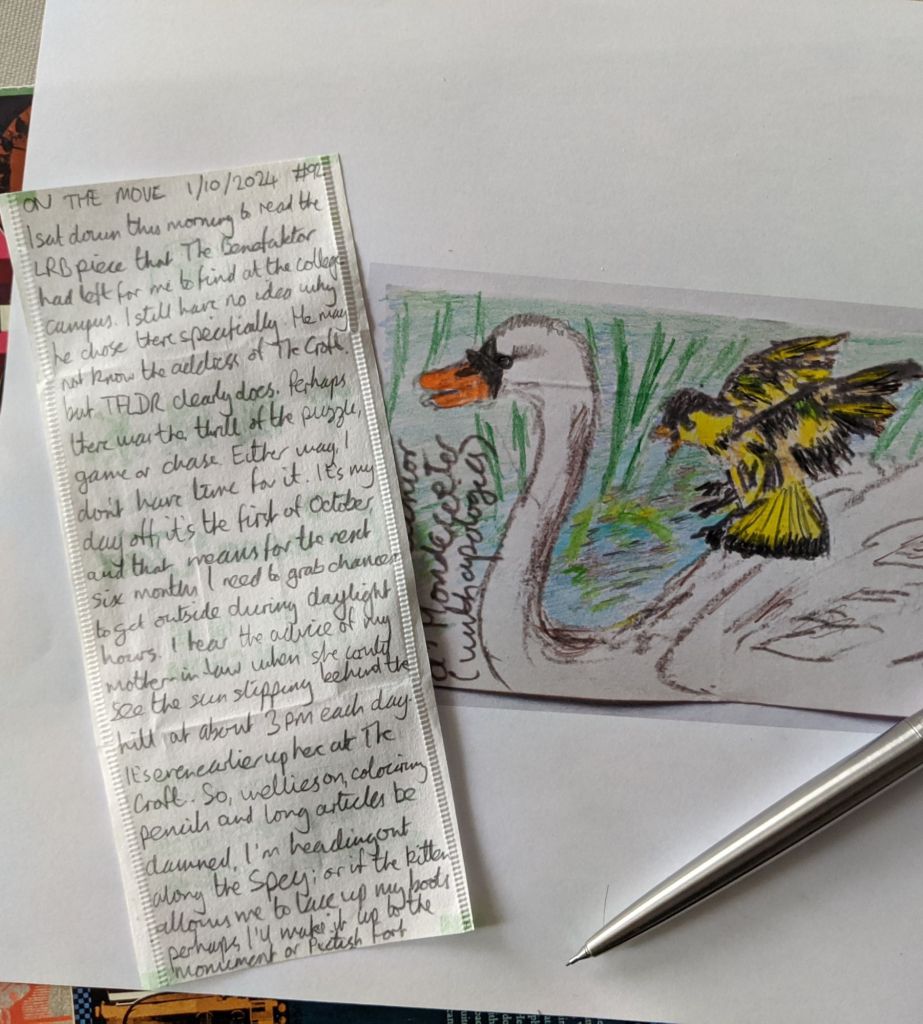 ON THE MOVE 1/10/2024 #92
I sat down this morning to read the
LRB piece that The Benefaktor
had left for me to find at the college
campus. I still have no idea why
he chose there specifically. He may
not know the address of The Croft.
but TFLDR clearly does. Perhaps
there was the thrill of the puzzle,
game or chase. Either way, I
don't have time for it. It's my
day off, it's the first of October
and that means for the next
six months I need to grab chances
to get outside during daylight
hours. I hear the advice of my
mother-in-law when she could
see the sun slipping behind the
hill at about 3pm each day.
It's even earlier up here at The
Croft. So, wellies on, colouring
pencils and long articles be
damned, I'm heading out
along the Spey; or if the kitten
allows me to lace up my boots
perhaps I'll make it up to the
monument or Pictish Fort
(with apologies)